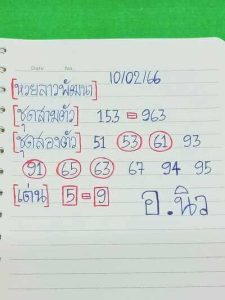 Date No.
10/02/66
[หวยลาวพัฒนา]
[ชุดสามตัว] 153 = 963
[ชุดสองตัว] 51 53 61 93
91 65 63 67 94 95
[เด่น] 5 = 9 อ.นิว